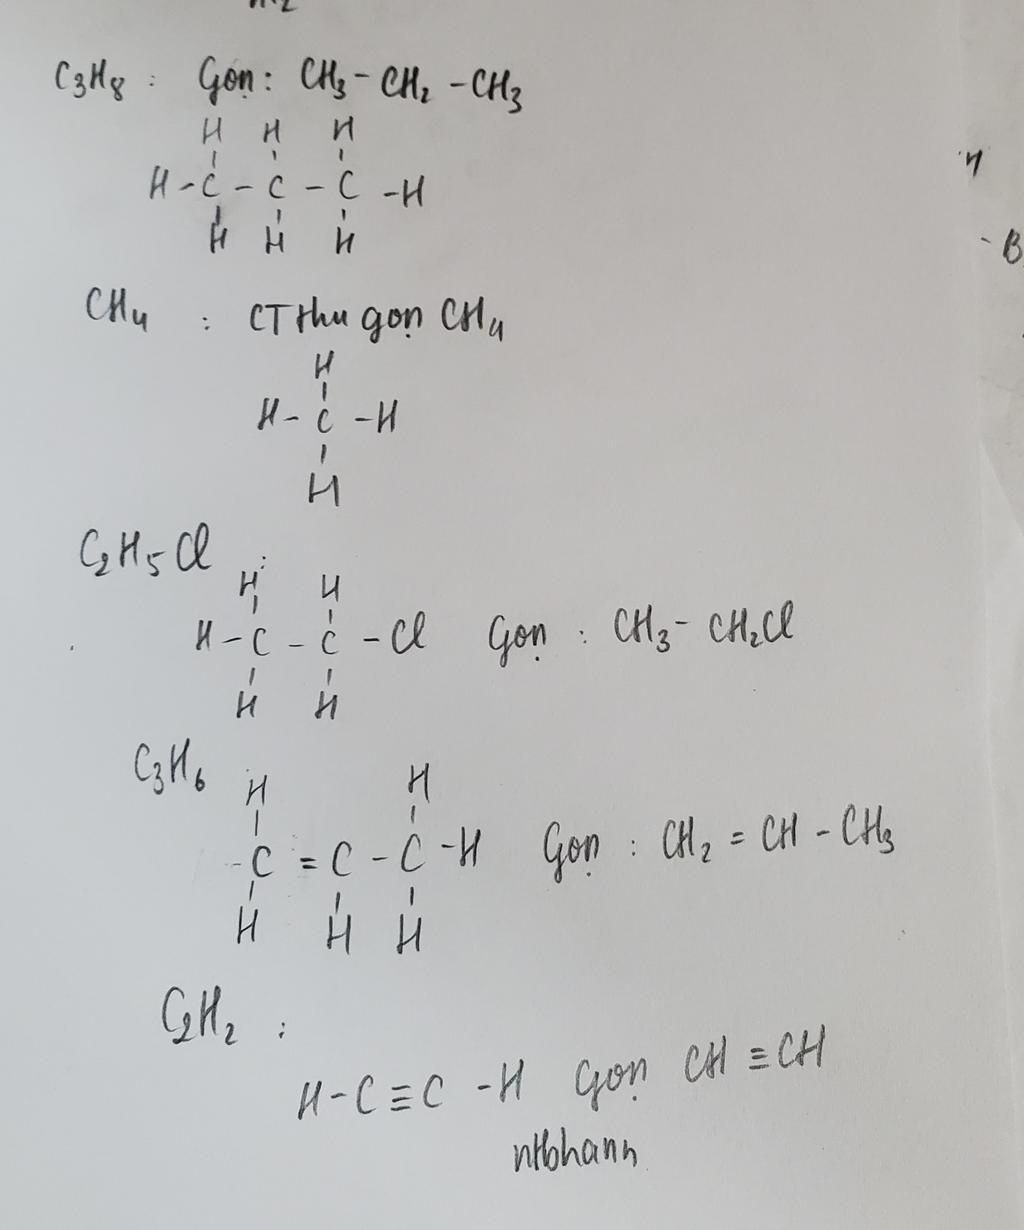 C₃H₈ : Gọn: CH₃ - CH₂ - CH₃
H H H
H - C - C - C - H
H H H
CH₄ : CT thu gọn CH₄
H
H - C - H
H
C₂H₅Cl :
H H
H - C - C - Cl Gọn : CH₃ - CH₂Cl
H H
C₃H₆
H H
- C = C - C - H Gọn : CH₂ = CH - CH₃
H H H
C₂H₂ :
H - C ≡ C - H Gọn CH ≡ CH